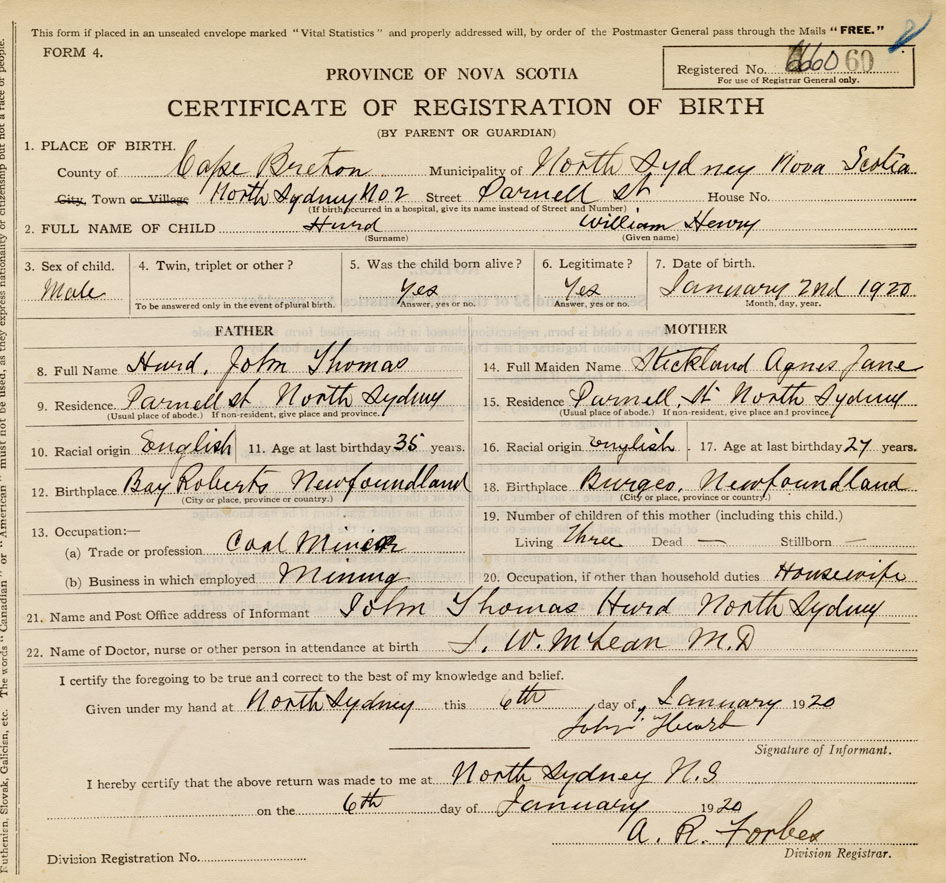 This form if placed in an unsealed envelope marked "Vital Statistics" and properly addressed will, by order of the Postmaster General pass through the Mails "FREE."
FORM 4.
Registered No. 6660 60
For use of Registrar General only.
PROVINCE OF NOVA SCOTIA
CERTIFICATE OF REGISTRATION OF BIRTH
(BY PARENT OR GUARDIAN)
1. PLACE OF BIRTH.
County of Cape Breton Municipality of North Sydney Nova Scotia
City, Town or Village North Sydney No 2 Street Parnell st House No.
(If birth occurred in a hospital, give its name instead of Street and Number)
2. FULL NAME OF CHILD Hurd William Henry
(Surname) (Given name)
3. Sex of child. 4. Twin, triplet or other? 5. Was the child born alive? 6. Legitimate? 7. Date of birth.
Male Yes Yes January 2nd 1920
To be answered only in the event of plural birth. Answer, yes or no. Answer, yes or no. Month, day, year.
FATHER
8. Full Name Hurd, John Thomas
9. Residence. Parnell st North Sydney
(Usual place of abode.) If non-resident, give place and province.
10. Racial origin English 11. Age at last birthday 35 years.
12. Birthplace Bay Roberts Newfoundland
(City or place, province or country.)
13. Occupation:—
(a) Trade or profession Coal Miner
(b) Business in which employed Mining
MOTHER
14. Full Maiden Name Stickland Agnes Jane
15. Residence Parnell St North Sydney
(Usual place of abode.) If non-resident, give place and province.
16. Racial origin English 17. Age at last birthday 27 years.
18. Birthplace Burgeo, Newfoundland
(City or place, province or country.)
19. Number of children of this mother (including this child.)
Living three Dead — Stillborn —
20. Occupation, if other than household duties Housewife
21. Name and Post Office address of Informant John Thomas Hurd North Sydney
22. Name of Doctor, nurse or other person in attendance at birth W. McLean M.D
I certify the foregoing to be true and correct to the best of my knowledge and belief.
Given under my hand at North Sydney this 6th day of January 1920
John
Signature of Informant.
I hereby certify that the above return was made to me at North Sydney N.S
on the 6th day of January 1920
A. R. Forbes
Division Registration No. Division Registrar.
Slovak, Galician, etc. The words "Canadian" or "American" must not be used, as they express nationality or citizenship but not a race or people.